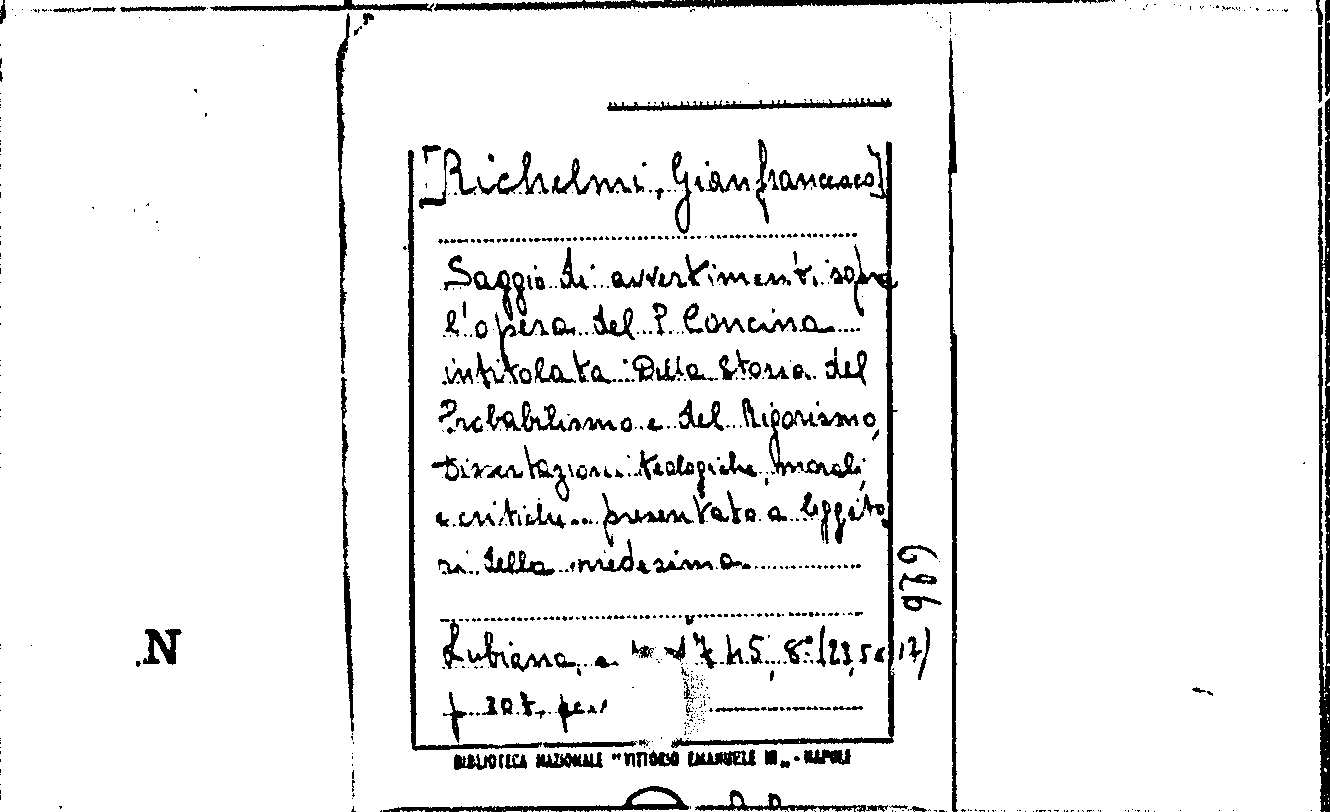 [Richelmi, Gianfrancesco]
Saggio di avvertimenti sopra
l'opera del P. Concina
intitolata Della Storia del
Probabilismo e del Rigorismo,
Dissertazioni teologiche, morali,
e critiche... presentato a leggito
ri della medesima
Lubiana, 1745, 8° (23,5x17)
p.
BIBLIOTECA NAZIONALE "VITTORIO EMANUELE III" - NAPOLI
686
N